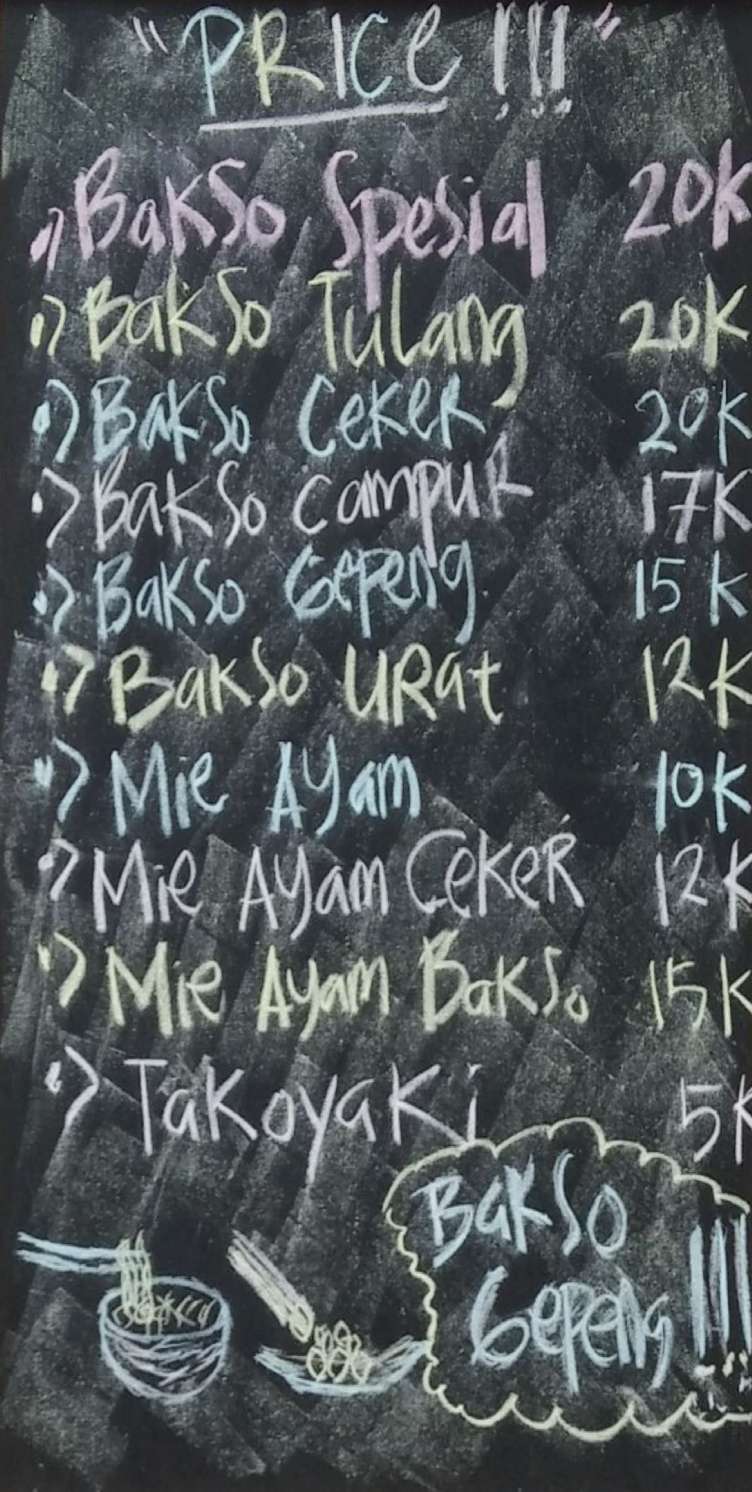 "PRICE !!!"
Bakso Spesial 20K
Bakso Tulang 20K
Bakso Ceker 20K
Bakso Campur 17K
Bakso Gepeng 15K
Bakso Urat 12K
Mie Ayam 10K
Mie Ayam Ceker 12K
Mie Ayam Bakso 15K
Takoyaki 5K
Bakso
Gepeng !!!